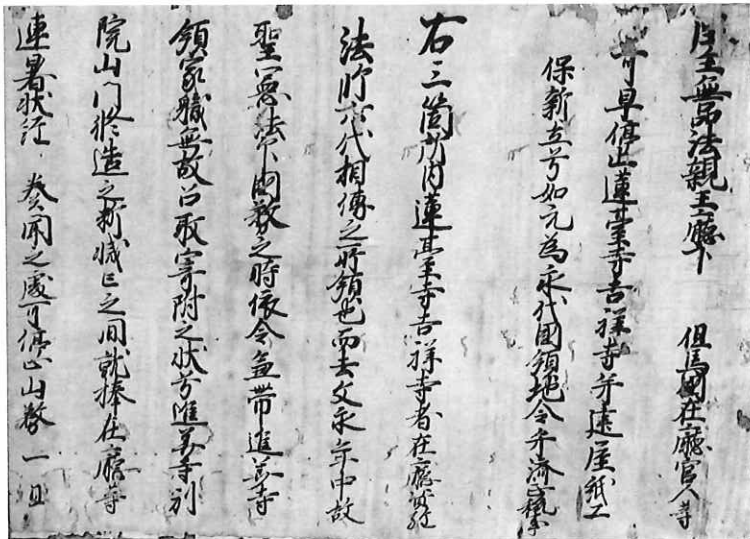 座主無品法親王廳下　但馬國在廳官人等
可早停止蓮臺寺吉祥寺并建屋紙工
保新立券如元為永代國領地令弁濟
右三箇所内蓮臺寺吉祥寺者在廳
法眼　代相傳之所領也而去文永年中故
聖　法下國務之時依令兼帯進美寺
領家職無故召取寄附之状寄進美寺別
院山門修造之料減亡之間就捧在廳等
連署状経　奏聞之處可停止山務一旦